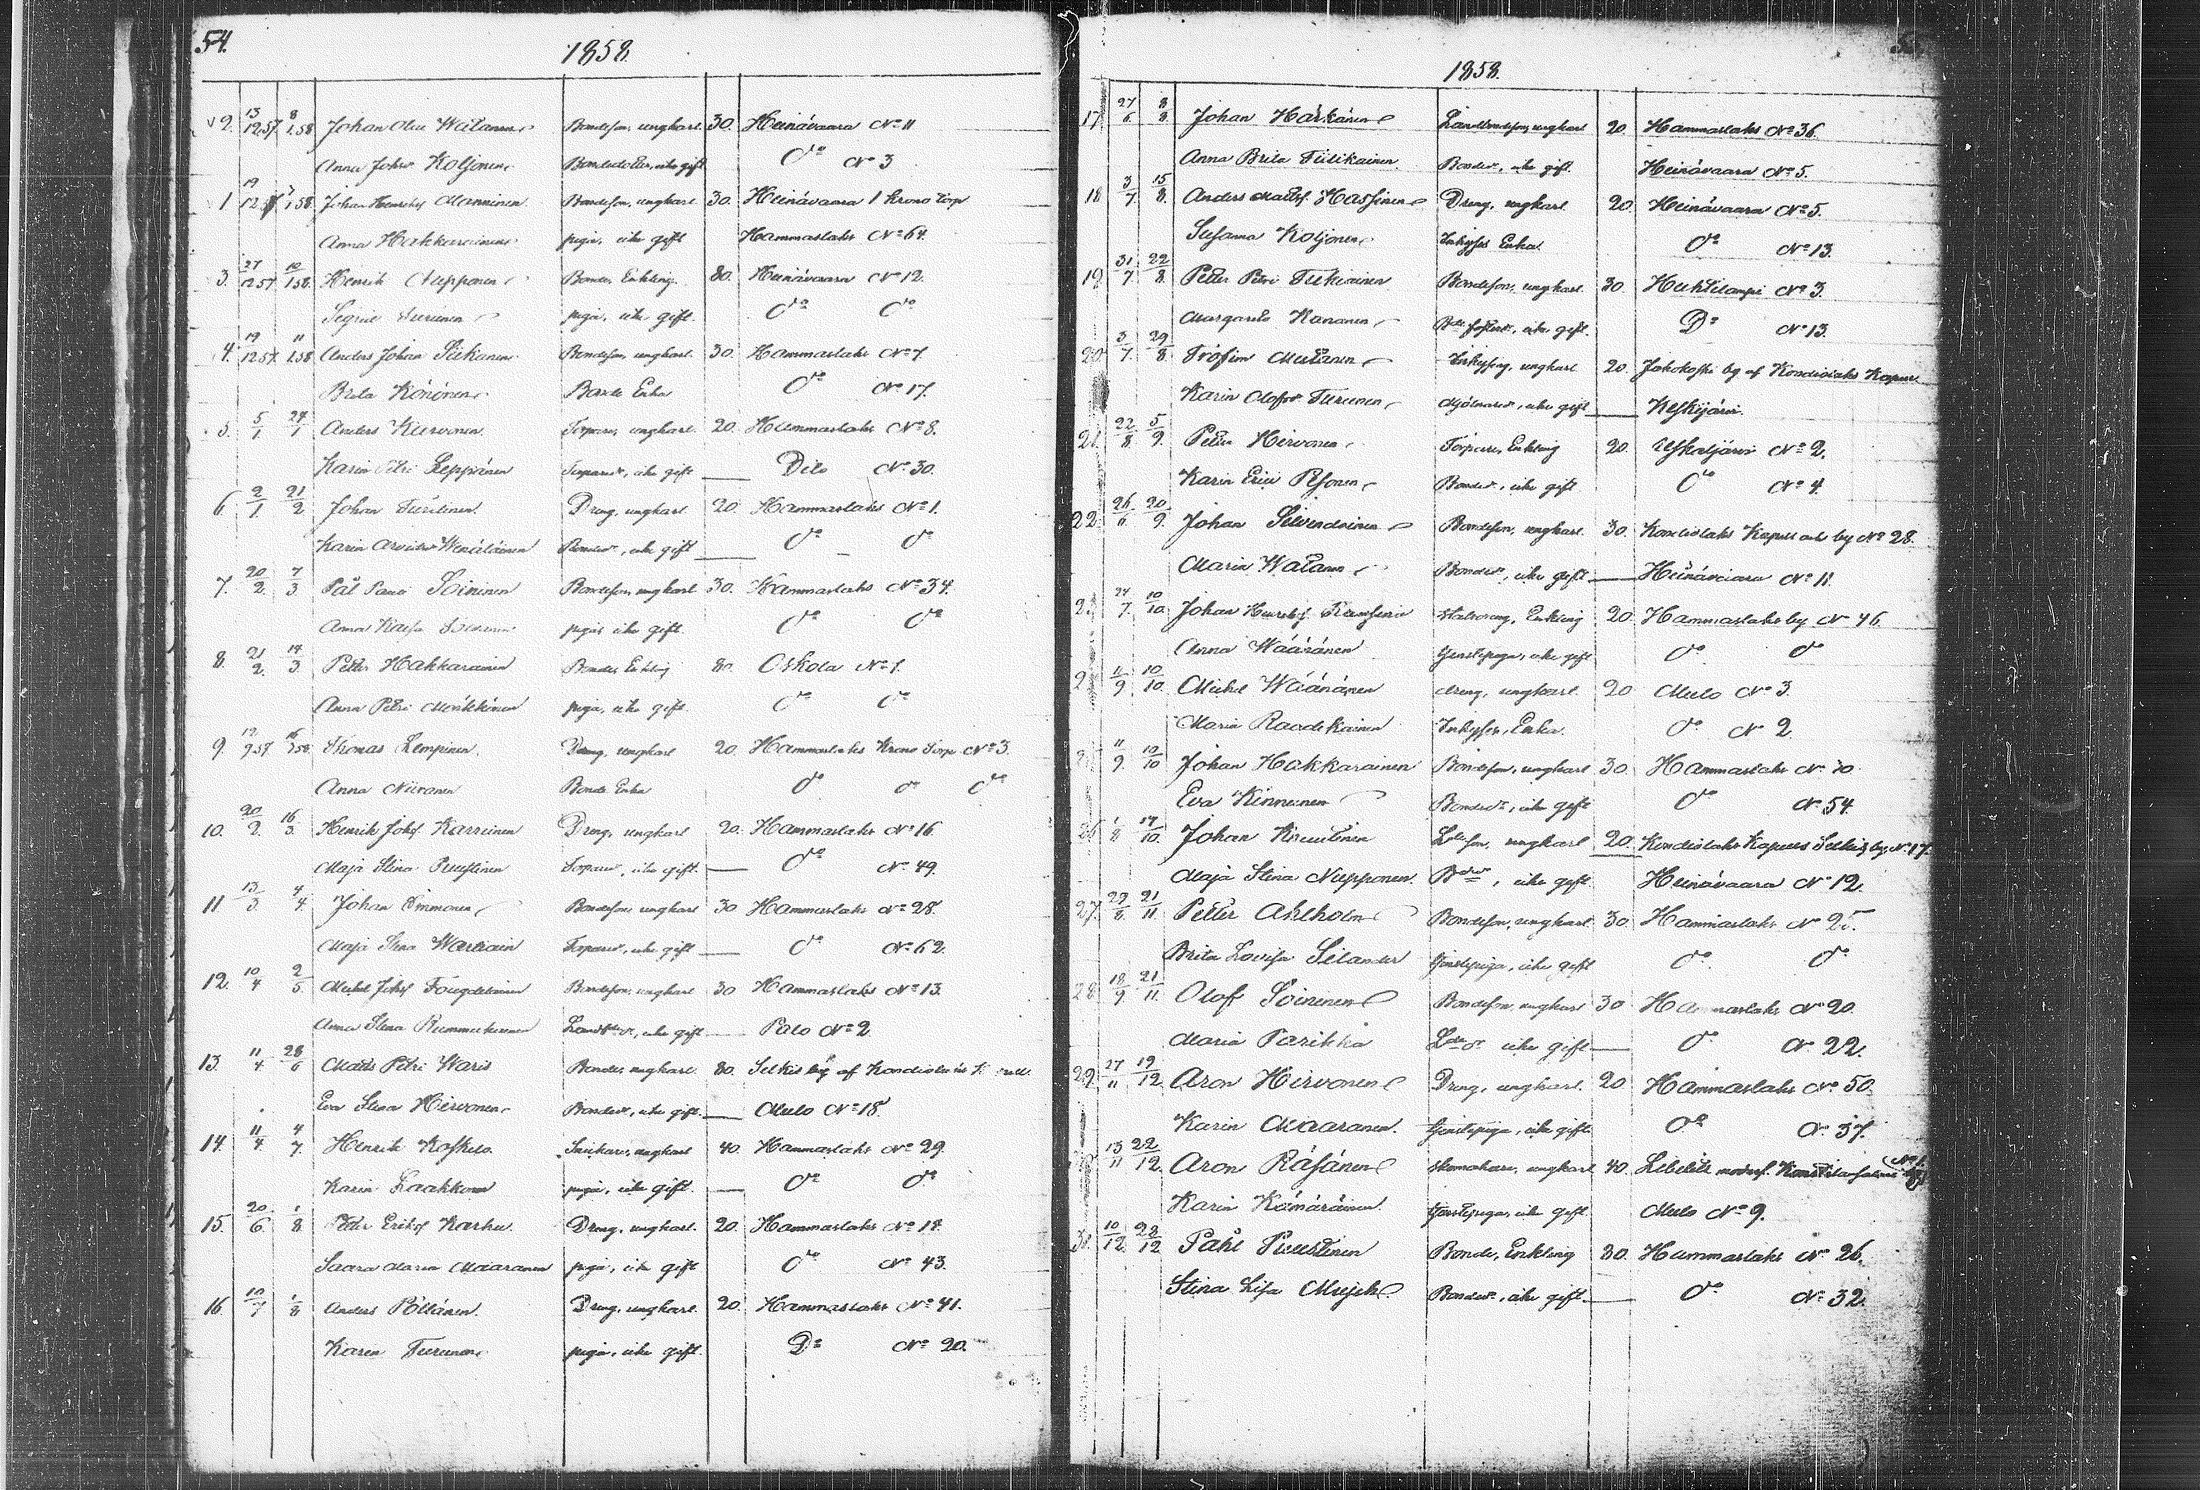 54.
1858.
2. 13/12 57. 8/1 58 Johan Olu Watanen Bondeson, ungkarl 30. Heinävaara No 11
Anna Johsdr Koljonen Bondedotter, icke gift Do No 3
1 19/12 57 1 58. Johan Henriks Manninen Bondeson, ungkarl 30. Heinävaara 1 Krono torp
Anna Hakkarainen piga, icke gift Hammaslaks No 64.
3. 27/12 57 10/1 58. Henrik Nupponen Bonde, Enkling 80. Heinävaara No 12.
Turunen piga, icke gift Do Do
4. 19/12 57. 11/1 58 Anders Johan Bondeson, ungkarl 30. Hammaslaks No 7.
Brita Könönen Bonde Enka Do No 17.
5. 5/1 24/1 Anders Kurvonen Torpare, ungkarl 20. Hammaslaks No 8.
Karin Petri Leppänen Torparedr, icke gift Dito No 30.
6 2/1 21/2 Johan Dreng, ungkarl 20. Hammaslaks No 1.
Karin Arvidsdr Wenäläinen Bondedr, icke gift Do Do
7. 20/2 7/3 Pål Paul Soininen Bondeson, ungkarl 30. Hammaslaks No 34.
Anna Kaisa piga icke gift. Do Do
8. 21/2 14/3 Petter Hakkarainen Bonde, Enkling 80. Oskola No 1.
Anna Petri Mörkkönen piga, icke gift. Do Do
9. 19/9 57. 16/ 58 Thomas Lempinen Dreng, ungkarl 20. Hammaslaks Krono Torp No 3.
Anna Niiranen Bonde Enka Do Do Do
10. 20/2. 16/3. Henrik Johsf Karvinen Dreng, ungkarl 20. Hammaslaks No 16
Maja Stina Puustinen Torparedr, icke gift. Do No 49.
11 13/3. 4/4. Johan Immonen Bondeson, ungkarl 30 Hammaslaks No 28.
Maja Stina Wartiain Torparedr, icke gift Do No 62.
12. 10/4 2/5 Michel Johsf Bondeson, ungkarl 30 Hammaslaks No 13.
Anna Stina Rummukainen icke gift Palo No 2
13. 11/4 28/6 Matts Petri Waris Bonde, ungkarl 80. Selkis by af Kondiolaks
Eva Stina Hirvonen Bondedr, icke gift Mulo No 18
14. 11/4 4/7. Henrik Koskelo Snickare, ungkarl 40. Hammaslaks No 29.
Karin Laakkonen piga, icke gift. Do Do
15. 20/6 1/8 Petr Eriksf Karhu Dreng, ungkarl 20. Hammaslaks No 18.
Saara Maria Maaranen piga, icke gift Do No 43.
16. 10/7 1/8 Anders Pöllänen Dreng, ungkarl 20. Hammaslaks No 41.
Karin Turunen piga, icke gift. Do No 20.
1858.
17. 27/6 8/8 Johan Härkänen Landbondeson, ungkarl 20 Hammaslaks No 36.
Anna Brita Tiilikainen Bondedr, icke gift. Heinävaara No 5.
18 3/7 15/8. Anders Mattsf. Hassinen Dreng, ungkarl 20. Heinävaara No 5.
Susanna Koljonen Inhyses Enka Do No 13.
19. 31/7 22/8 Petter Petri Tukiainen Bondeson, ungkarl 30. Huhtilampi No 3.
Margareta Kananen icke gift. Do No 13.
20. 3/7. 29/8. Trofim Mutanen Inhysing, ungkarl 20. Jakokoski by af Kondiolaks Kapell
Karin Olofsdr Turunen Mjölnaredr, icke gift Keskijärvi.
21. 22/8 5/9. Petter Hirvonen Torpare, Enkling 20. Uskaljärvi No 2.
Karin Eric Piironen Bondedr, icke gift Do No 4.
22. 26/ 20/9. Johan Silvendoinen Bondeson, ungkarl. 30. Kondiolaks Kapell och by No 28.
Maria Watanen Bondedr, icke gift Heinävaara No 11.
23. 24/7. 10/10. Johan Henriksf Enkling 20 Hammaslaks by No 46.
Anna Wääränen tjenstepiga, icke gift Do Do
2 11/9 10/10. Michel Wäänänen dreng, ungkarl. 20 Mulo No 3.
Maria Raadikainen Inhyses, Enka. Do No 2
11/9. 10/10 Johan Hakkarainen Bondeson, ungkarl 30. Hammaslaks No 30
Eva Kinnunen Bondedr, icke gift Do No 54.
26 1/8 17/10. Johan Ldeson, ungkarl 20. Kondiolaks Kapells Selkis by No 17.
Maja Stina Nupponen. Bdedr, icke gift. Heinävaara No 12.
27. 29/8. 21/11. Petter Ahlholm Bondeson, ungkarl 30. Hammaslaks No 25.
Brita Lovisa Selander tjenstepiga, icke gift Do Do
28. 19/9. 21/11. Olof Soininen Bondeson, ungkarl 30. Hammaslaks No 20.
Maria Parikka Lde dr icke gift Do No 22.
29. 27/11 19/12. Aron Hirvonen Dreng, ungkarl. 20 Hammaslaks No 50.
Karin Maaranen. tjenstepiga, icke gift. Do No 37.
13/11 22/12. Aron Räsänen skomakare, ungkarl 40. Libelits No 1.
Karin Kämäräinen. tjenstepiga, icke gift. Mulo No 9.
31. 10/12. 28/12 Påhl Puustinen Bonde, Enkling 30. Hammaslaks No 26.
Stina Lisa Bondedr, icke gift. Do No 32.